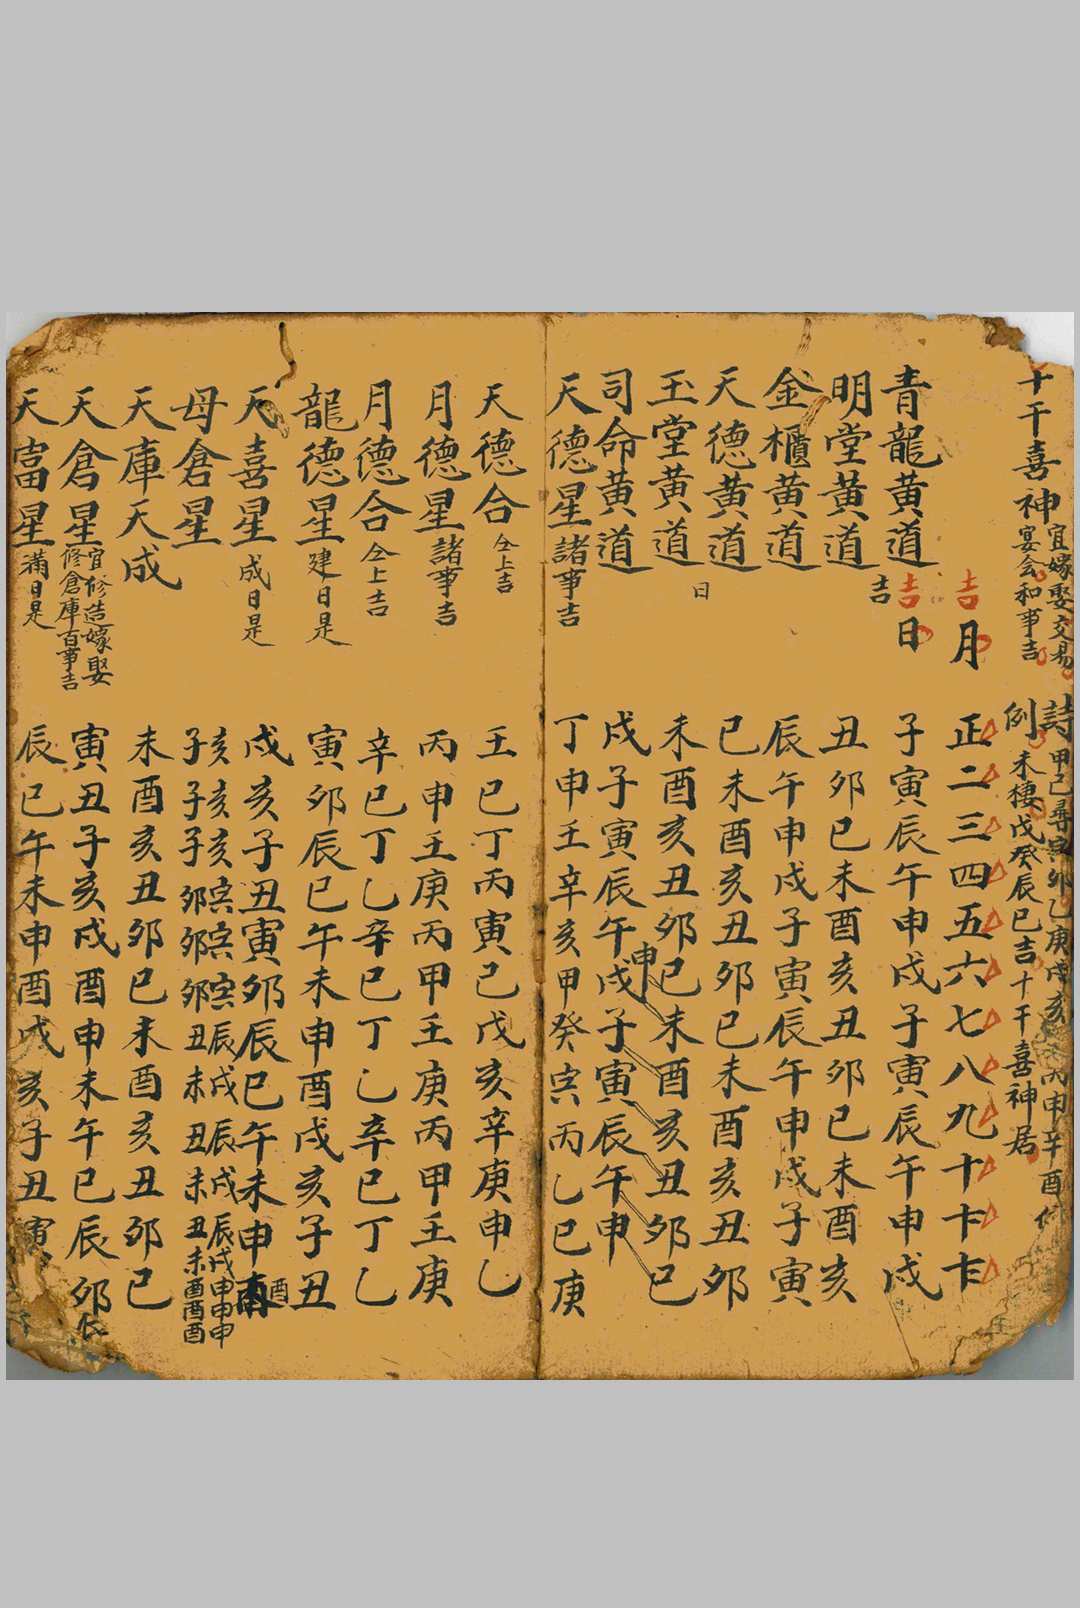 十干喜神 宜嫁娶交易
宴会和事吉
詩 甲己尋寅卯乙庚戌亥 丙申辛酉
例 未棲戊癸辰巳吉十干喜神居
吉月 正二三四五六七八九十
吉日
青龍黃道 吉 子寅辰午申戌子寅辰午申戌
明堂黃道 丑卯巳未酉亥丑卯巳未酉亥
金櫃黃道 辰午申戌子寅辰午申戌子寅
天德黃道 巳未酉亥丑卯巳未酉亥丑卯
玉堂黃道 日 未酉亥丑卯巳未酉亥丑卯巳
司命黃道 戌子寅辰午申戌子寅辰午申
天德星 諸事吉 丁申壬辛亥甲癸寅丙乙巳庚
天德合 仝上吉 壬巳丁丙寅己戊亥辛庚申乙
月德星 諸事吉 丙申壬庚丙甲壬庚丙甲壬庚
月德合 仝上吉 辛巳丁乙辛巳丁乙辛巳丁乙
龍德星 建日是 寅卯辰巳午未申酉戌亥子丑
天喜星 成日是 戌亥子丑寅卯辰巳午未申酉
母倉星 亥亥亥寅寅寅辰戌辰戌辰戌申申申
子子子卯卯卯丑未丑未丑未酉酉酉
天庫天成 未酉亥丑卯巳未酉亥丑卯巳
天倉星 宜修造嫁娶
修倉庫百事吉
寅丑子亥戌酉申未午巳辰卯
天富星 滿日是 辰巳午未申酉戌亥子丑寅